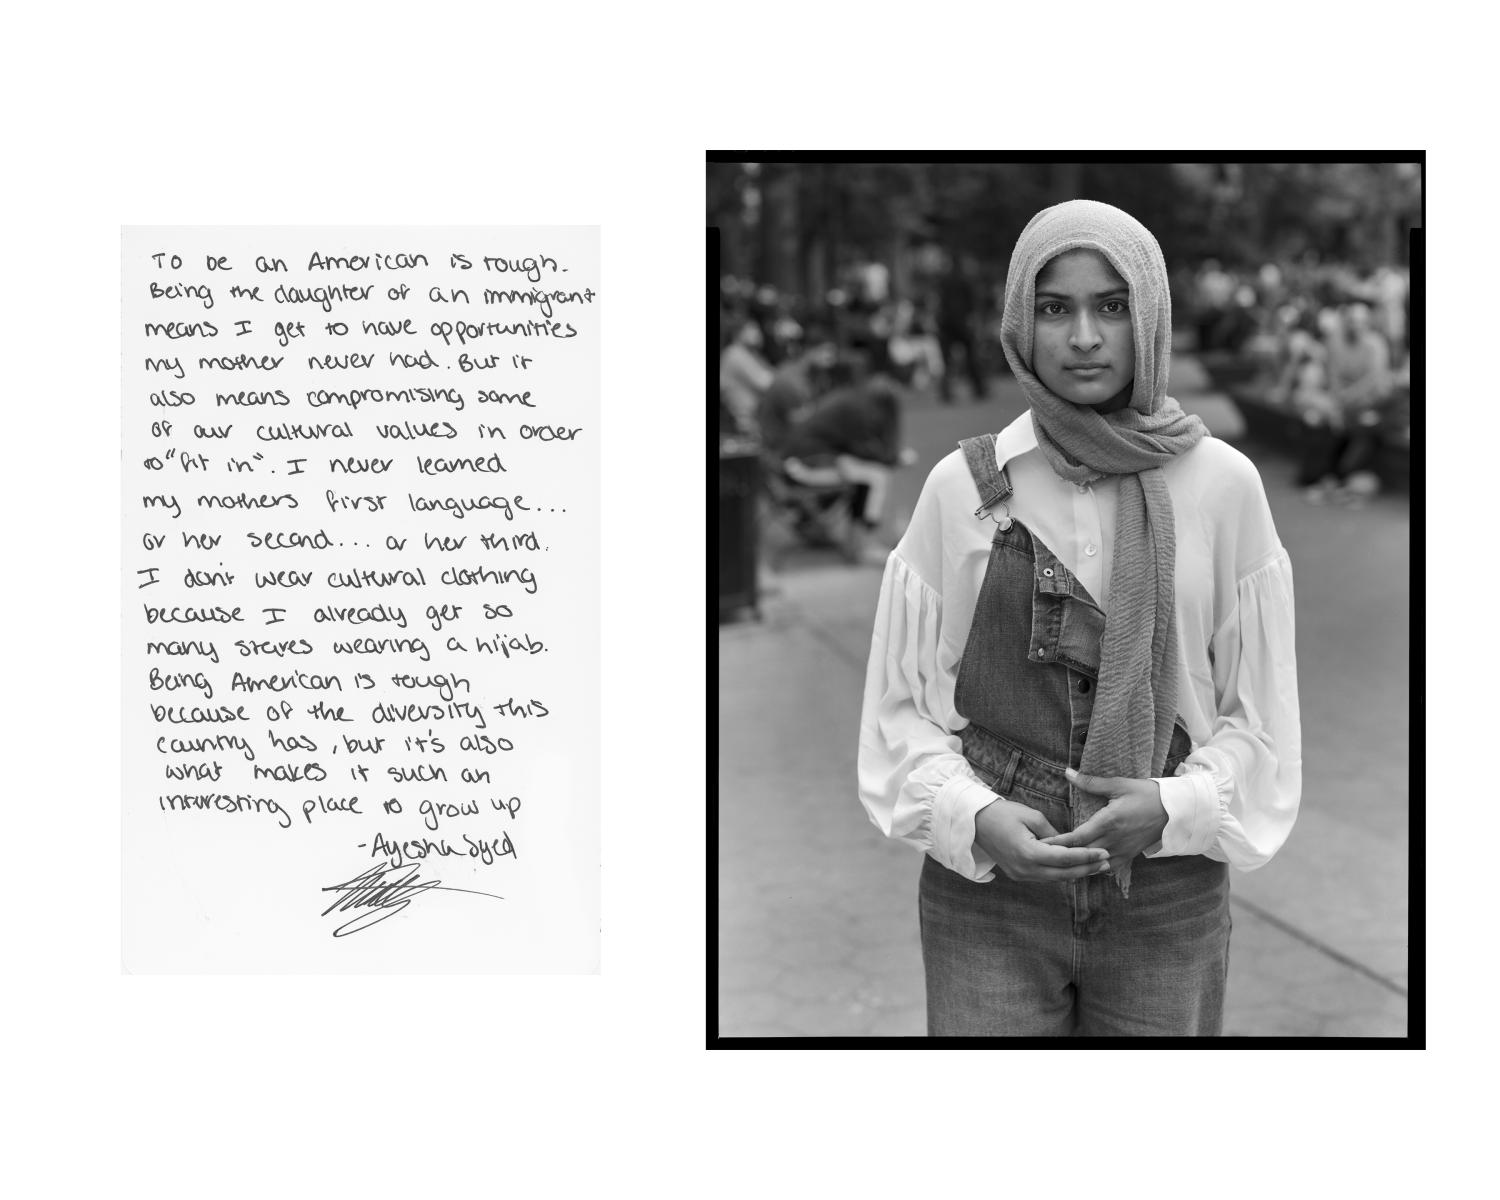 To be an American is tough.
Being the daughter of an immigrant
means I get to have opportunities
my mother never had. But it
also means compromising some
of our cultural values in order
to "fit in". I never learned
my mothers first language...
or her second... or her third.
I don't wear cultural clothing
because I already get so
many stares wearing a hijab.
Being American is tough
because of the diversity this
country has, but it's also
what makes it such an
interesting place to grow up
-Ayesha Syed